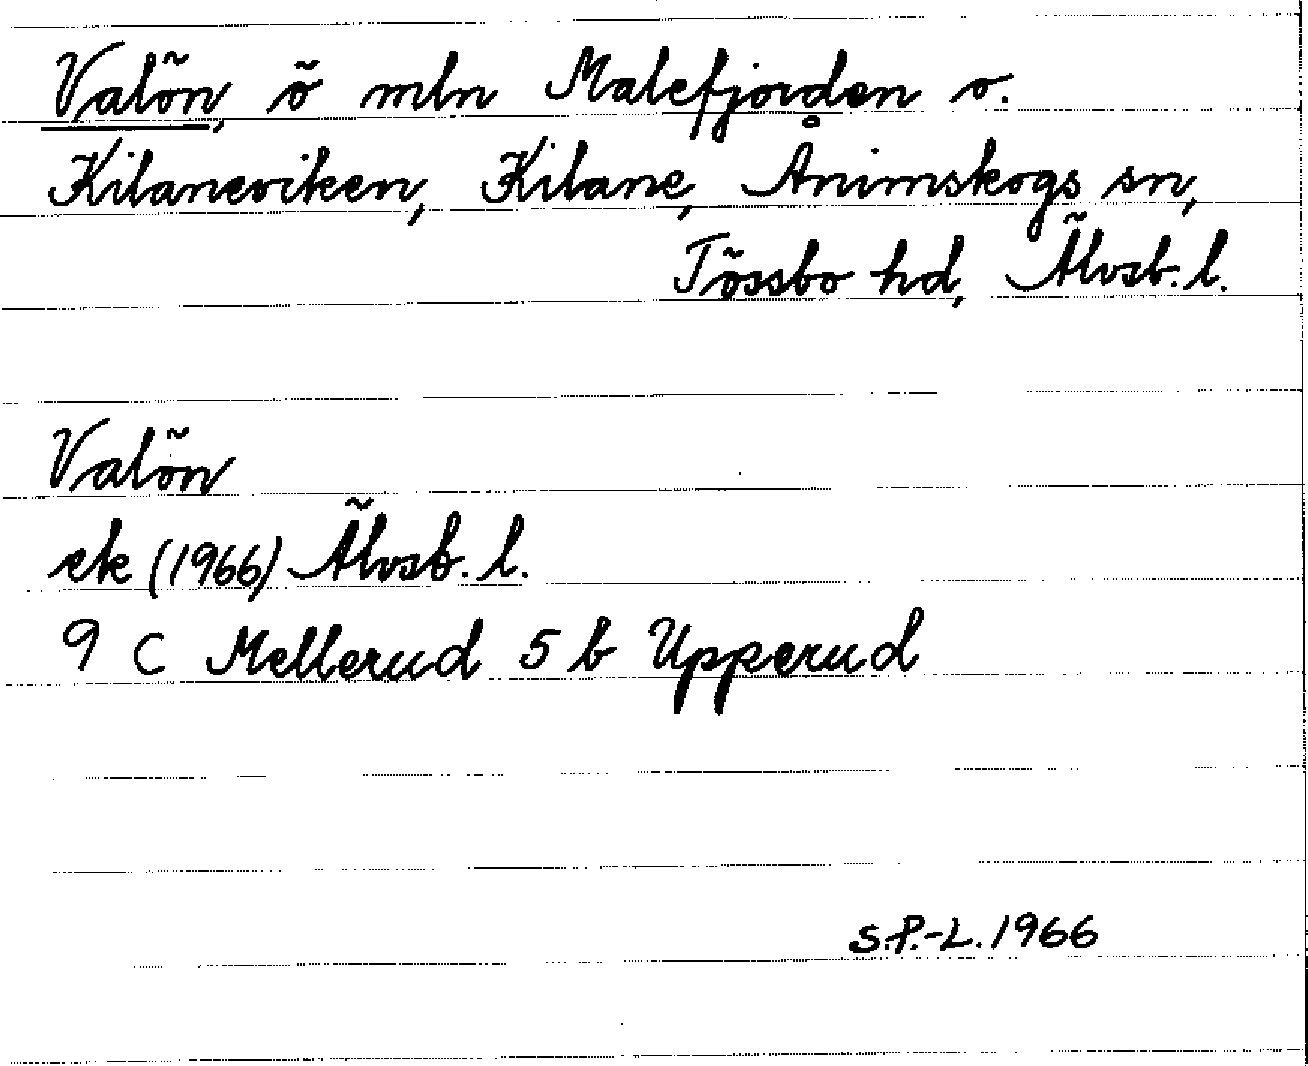 Valön, ö mln Malefjorden o.
Kilaneviken, Kilane, Ånimskogs sn,
Tössbo hd, Älvsb. l.
Valön
ek (1966) Älvsb. l.
9 C Mellerud 5 b Upperud
S.P.-L. 1966